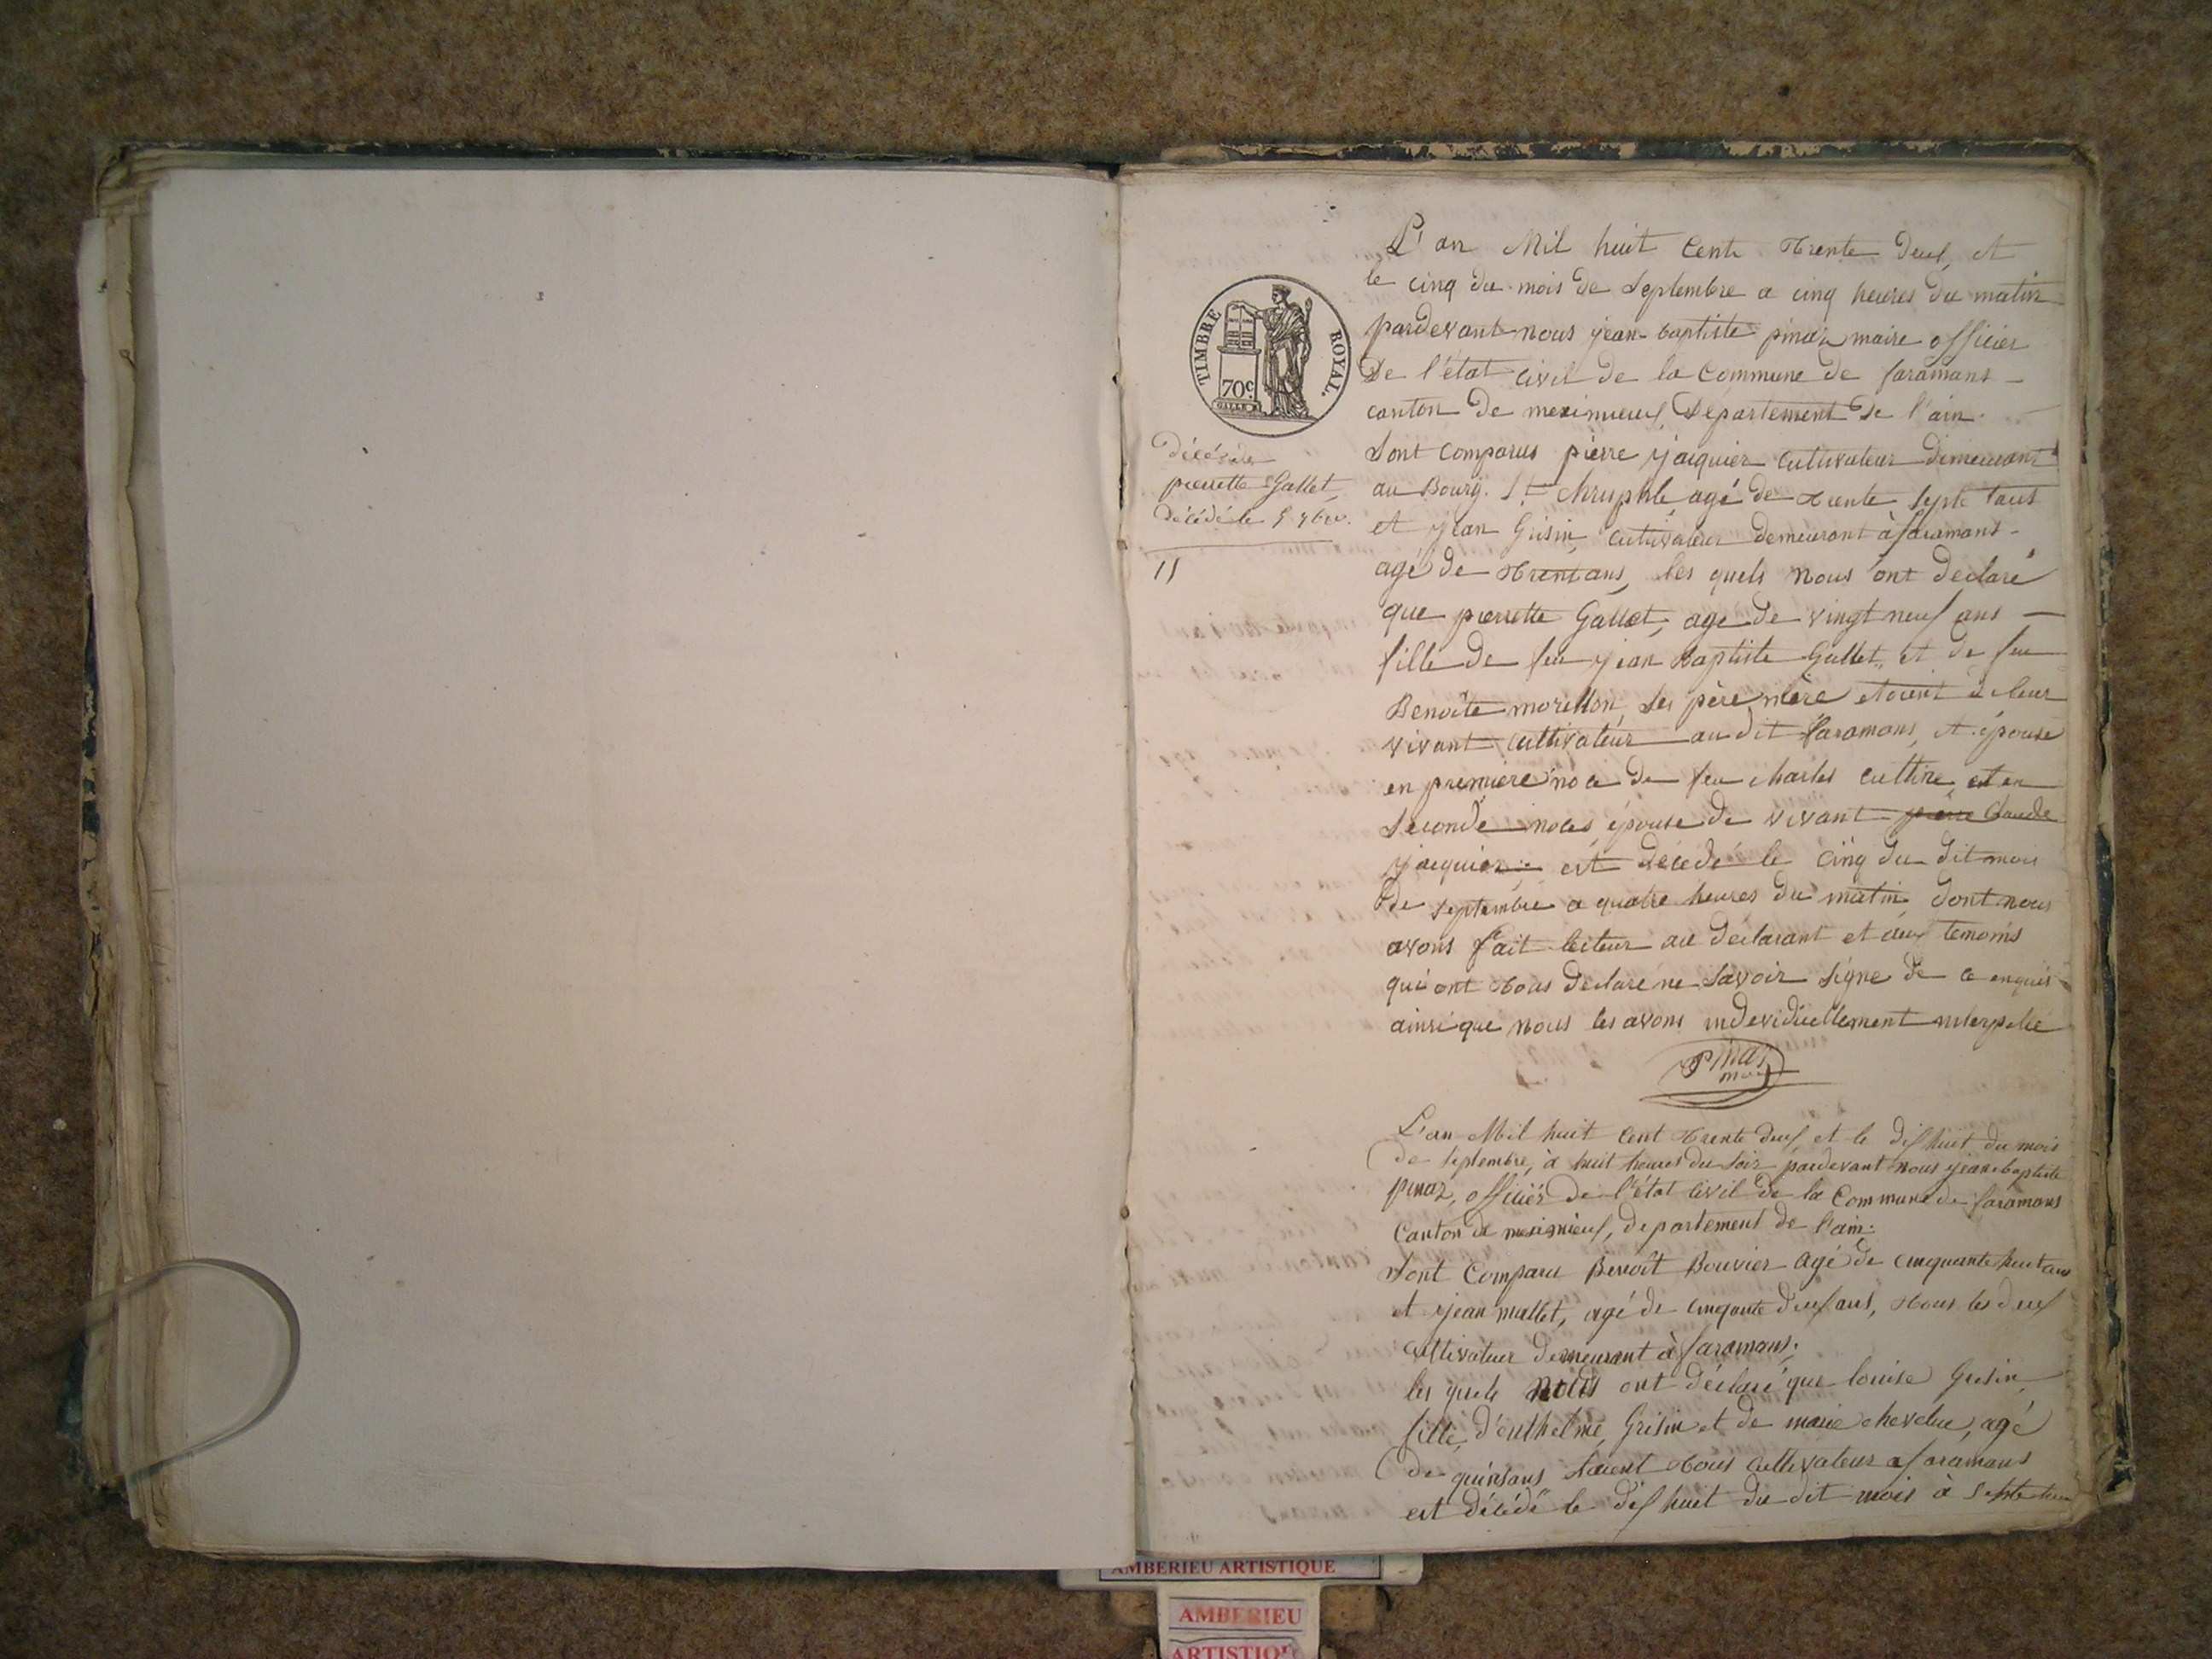 TIMBRE ROYAL.
70c.
Décés de
pierrette Gallet,
décédé le 5 7bre.
11
L'an Mil huit Cent Trente deux, et
le cinq du mois de Septembre a cinq heures du matin
pardevant nous jean-baptiste pinaz maire officier
De l'état civil de la Commune de faramans -
canton de meximieux, Département de l'ain.
Sont Comparus pierre jacquier cultivateur demeurant
au Bourg. St agé de trente Septe tous
et jean Grisin, cultivateur demeurant à faramans -
agé de Trent ans, les quels nous ont declaré
que pierrette Gallet, agé de vingt neuf ans -
fille de feu jean Baptiste Gallet, et de feu
Benoîte morellon, Ses père mère etoient à leur
vivant cultivateur au dit faramans, et épouse
en première noce de feu charles cuttire, et en
Seconde noces épouse de vivant pierre Claude
jacquier; est décédé le Cinq du dit mois
de Septembre a quatre heures du matin, dont nous
avons fait lecteur au déclarant et aux temoins
qui ont tous déclaré ne Savoir Signe de ce enquis
ainsi que nous les avons indeviduellement interpelié
Pinaz
maire
L'an Mil huit Cent Trente deux, et le dix huit du mois
de Septembre, à huit heures du Soir, pardevant nous jean baptiste
pinaz, officier de l'état Civil de la Commune de faramans
Canton de meximieux, departement de l'ain.
Sont Comparu Benoit Bouvier agé de cinquante huit ans
et jean mallet, agé de cinqante deux ans, tous les deux
Cultivateur demeurant à faramans;
les quels nous ont déclaré que louise Grisin,
fille, d'enthelme, Grisin et de marie chevelue, agé
De quinsans étaient tous cultivateur a faramans
est décédé le dix huit du dit mois à Septe heu
AMBERIEU ARTISTIQUE
AMBERIEU
ARTISTIQUE